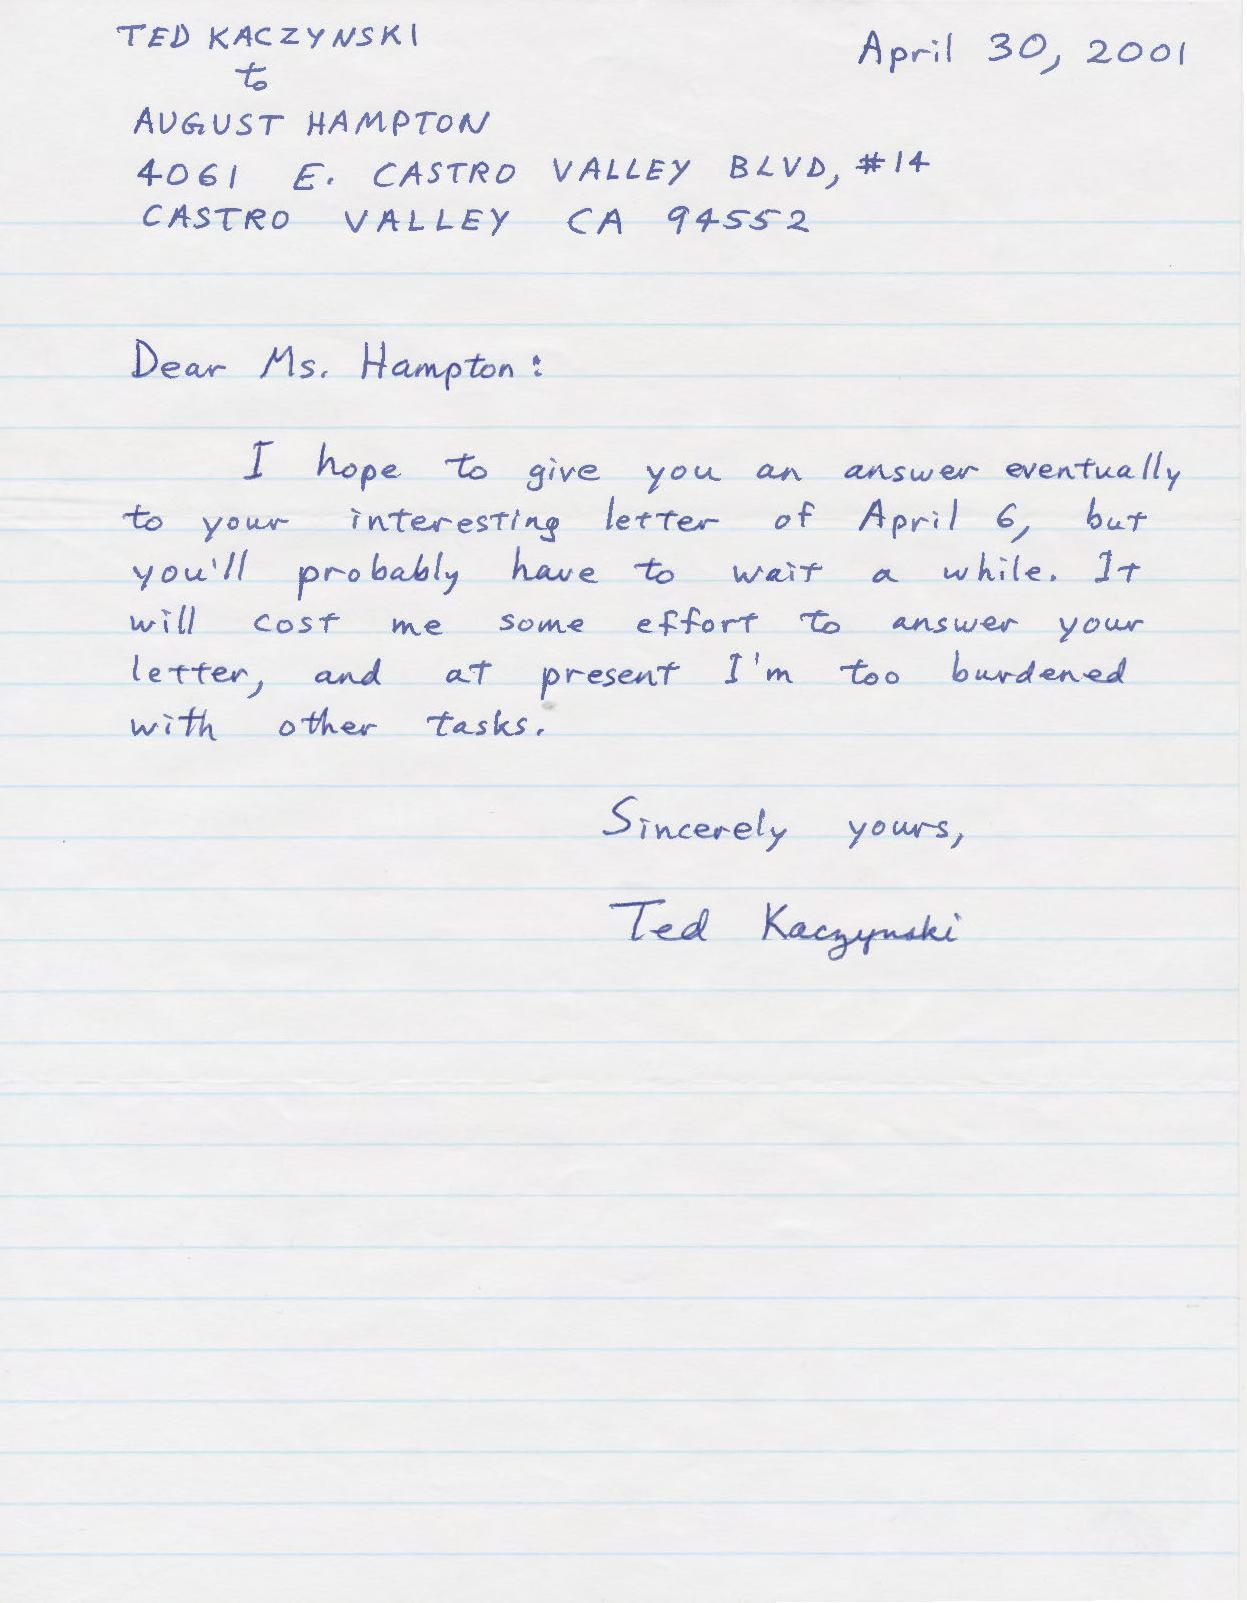 TED KACZYNSKI
April 30, 2001
to
AUGUST HAMPTON
4061 E. CASTRO VALLEY BLVD, #14
CASTRO VALLEY CA 94552
Dear Ms. Hampton:
I hope to give you an answer eventually
to your interesting letter of April 6, but
you'll probably have to wait a while. It
will cost me some effort to answer your
letter, and at present I'm too burdened
with other tasks.
Sincerely yours,
Ted Kaczynski